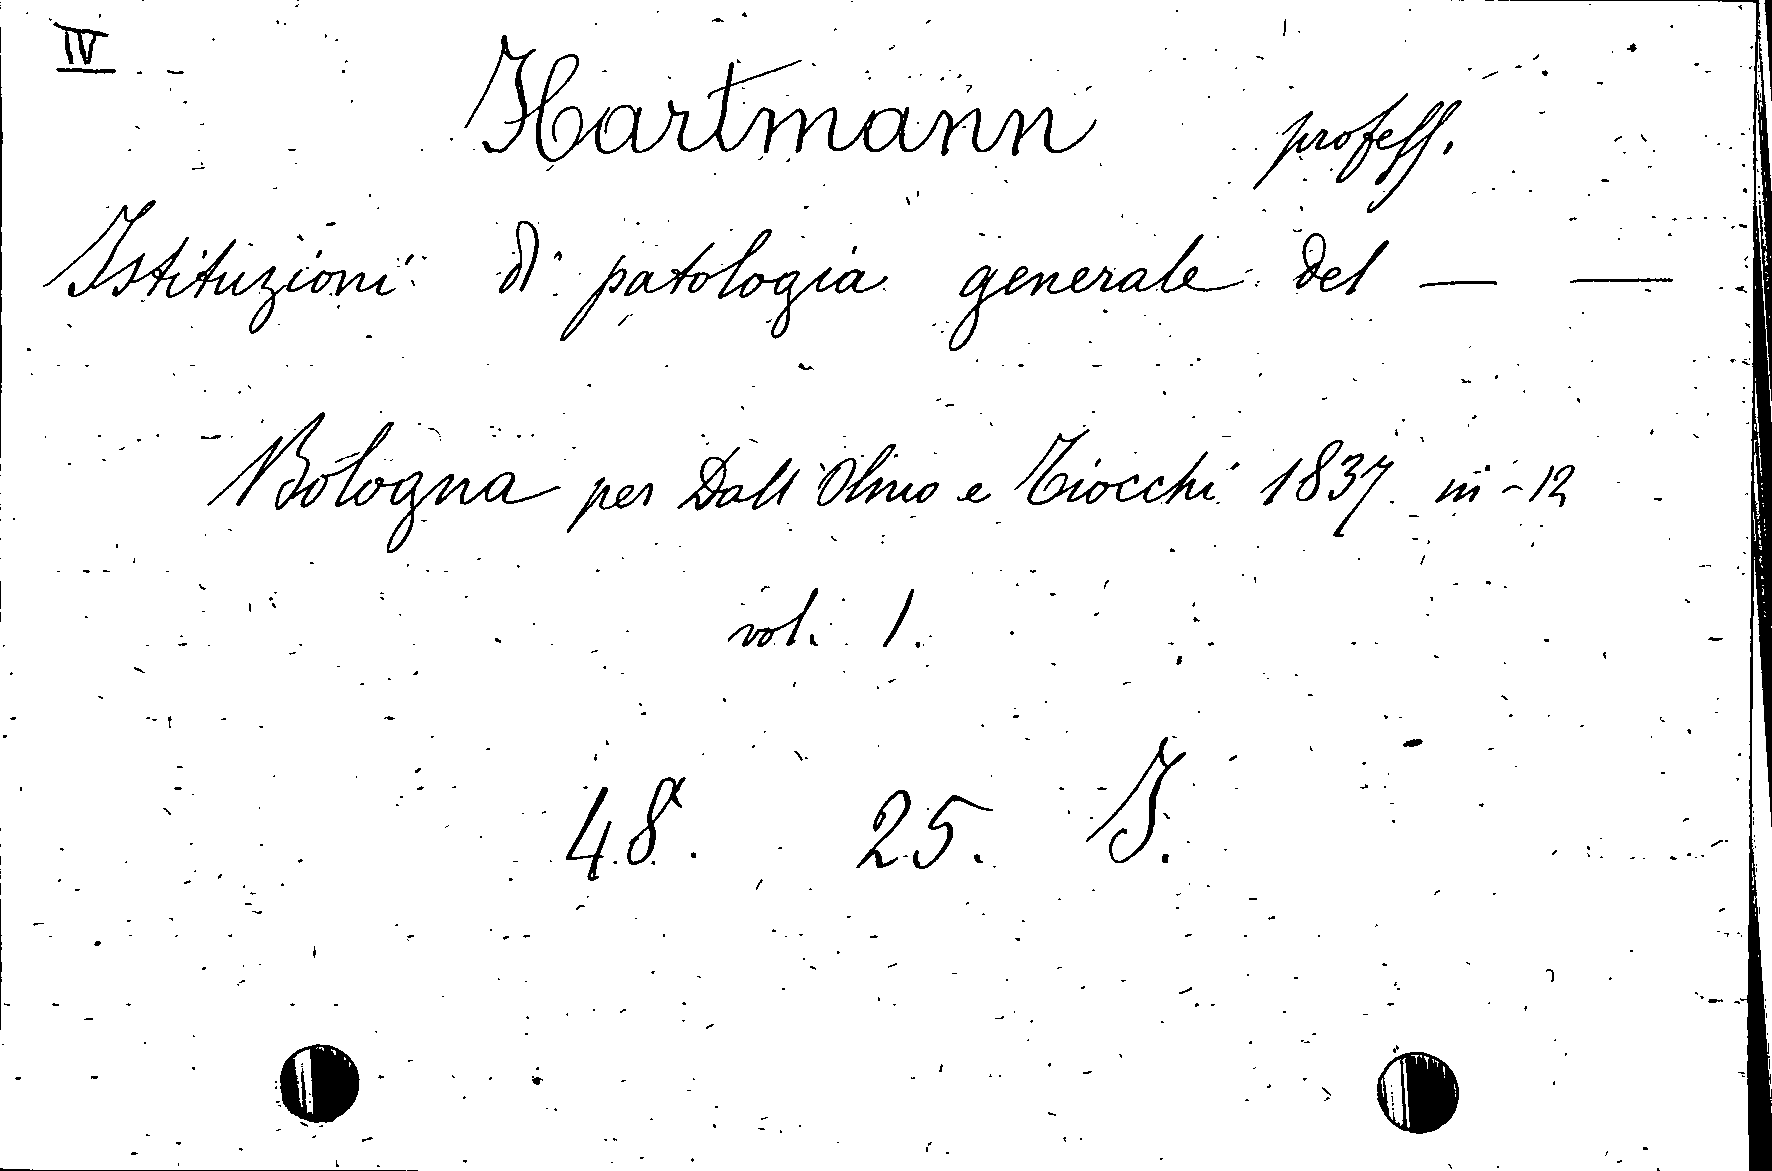 IV
Hartmann profess.
Istituzioni di patologia generale del — —
Bologna per Dall'Olmo e Tiocchi 1837 in-12
vol. 1.
48. 25. I.